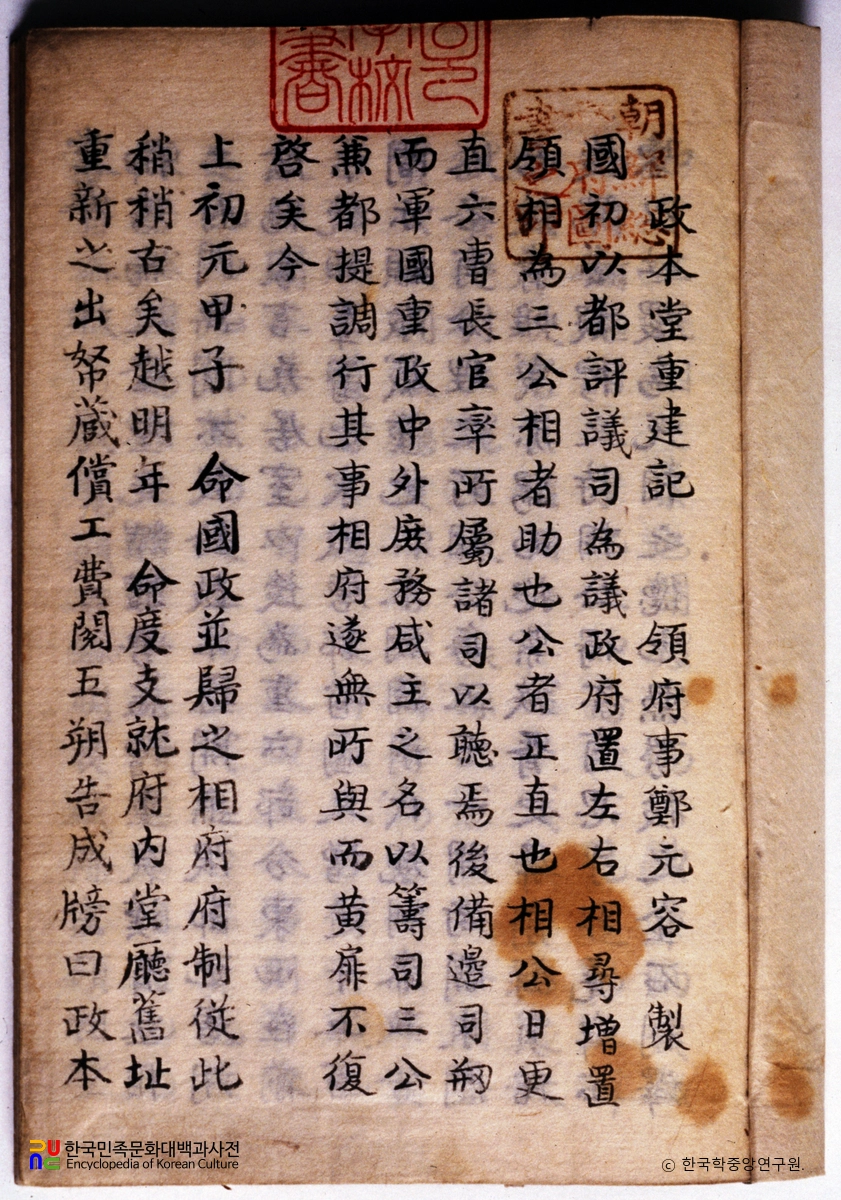 政本堂重建記 領府事鄭元容 製
國初以都評議司為議政府置左右相尋增置
領相為三公相者助也公者正直也相公日更
直六曹長官率所屬諸司以聽焉後備邊司刱
而軍國重政中外庶務咸主之名以籌司三公
兼都提調行其事相府遂無所與而黃扉不復
啓矣今
上初元甲子 命國政並歸之相府府制從此
稍稍古矣越明年 命度支就府內堂廳舊址
重新之出帑蔵償工費閱五朔告成牓曰政本
朝鮮總
圖
한국민족문화대백과사전
Encyclopedia of Korean Culture
© 한국학중앙연구원.